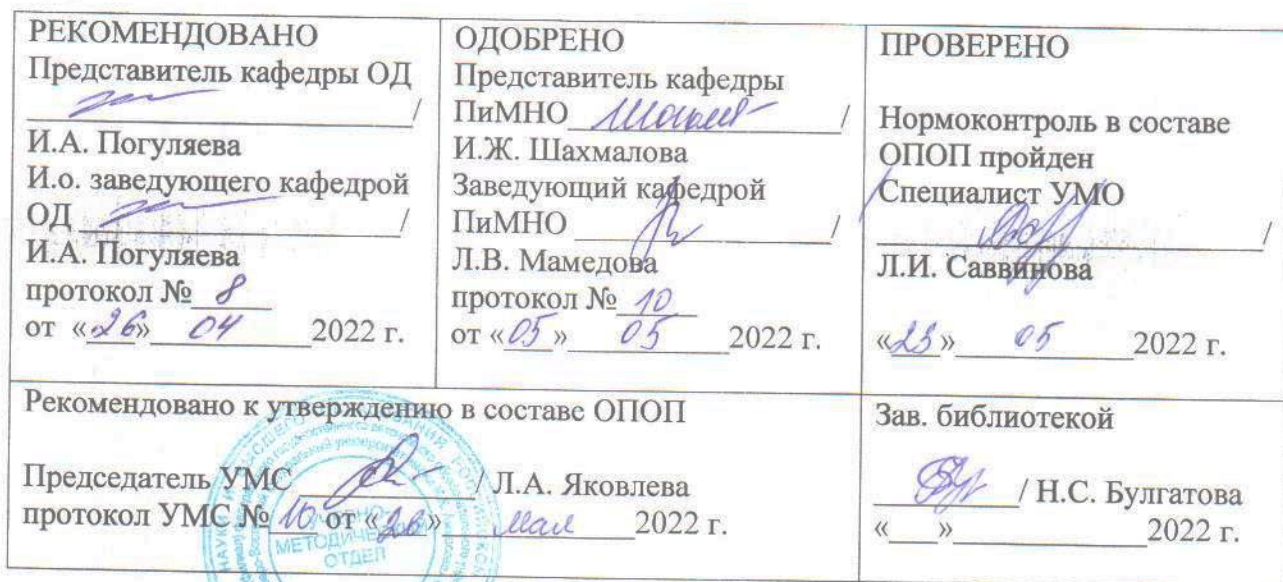 РЕКОМЕНДОВАНО
Представитель кафедры ОД
/
И.А. Погуляева
И.о. заведующего кафедрой
ОД /
И.А. Погуляева
протокол № 8
от «26» 04 2022 г.
ОДОБРЕНО
Представитель кафедры
ПиМНО /
И.Ж. Шахмалова
Заведующий кафедрой
ПиМНО /
Л.В. Мамедова
протокол № 10
от «05» 05 2022 г.
ПРОВЕРЕНО
Нормоконтроль в составе
ОПОП пройден
Специалист УМО
/
Л.И. Саввинова
« » 05 2022 г.
Рекомендовано к утверждению в составе ОПОП
Председатель УМС / Л.А. Яковлева
протокол УМС № 10 от «26» мая 2022 г.
УЧЕБНО-
МЕТОДИЧЕСКИЙ
ОТДЕЛ
Зав. библиотекой
/ Н.С. Булгатова
«___»______________2022 г.